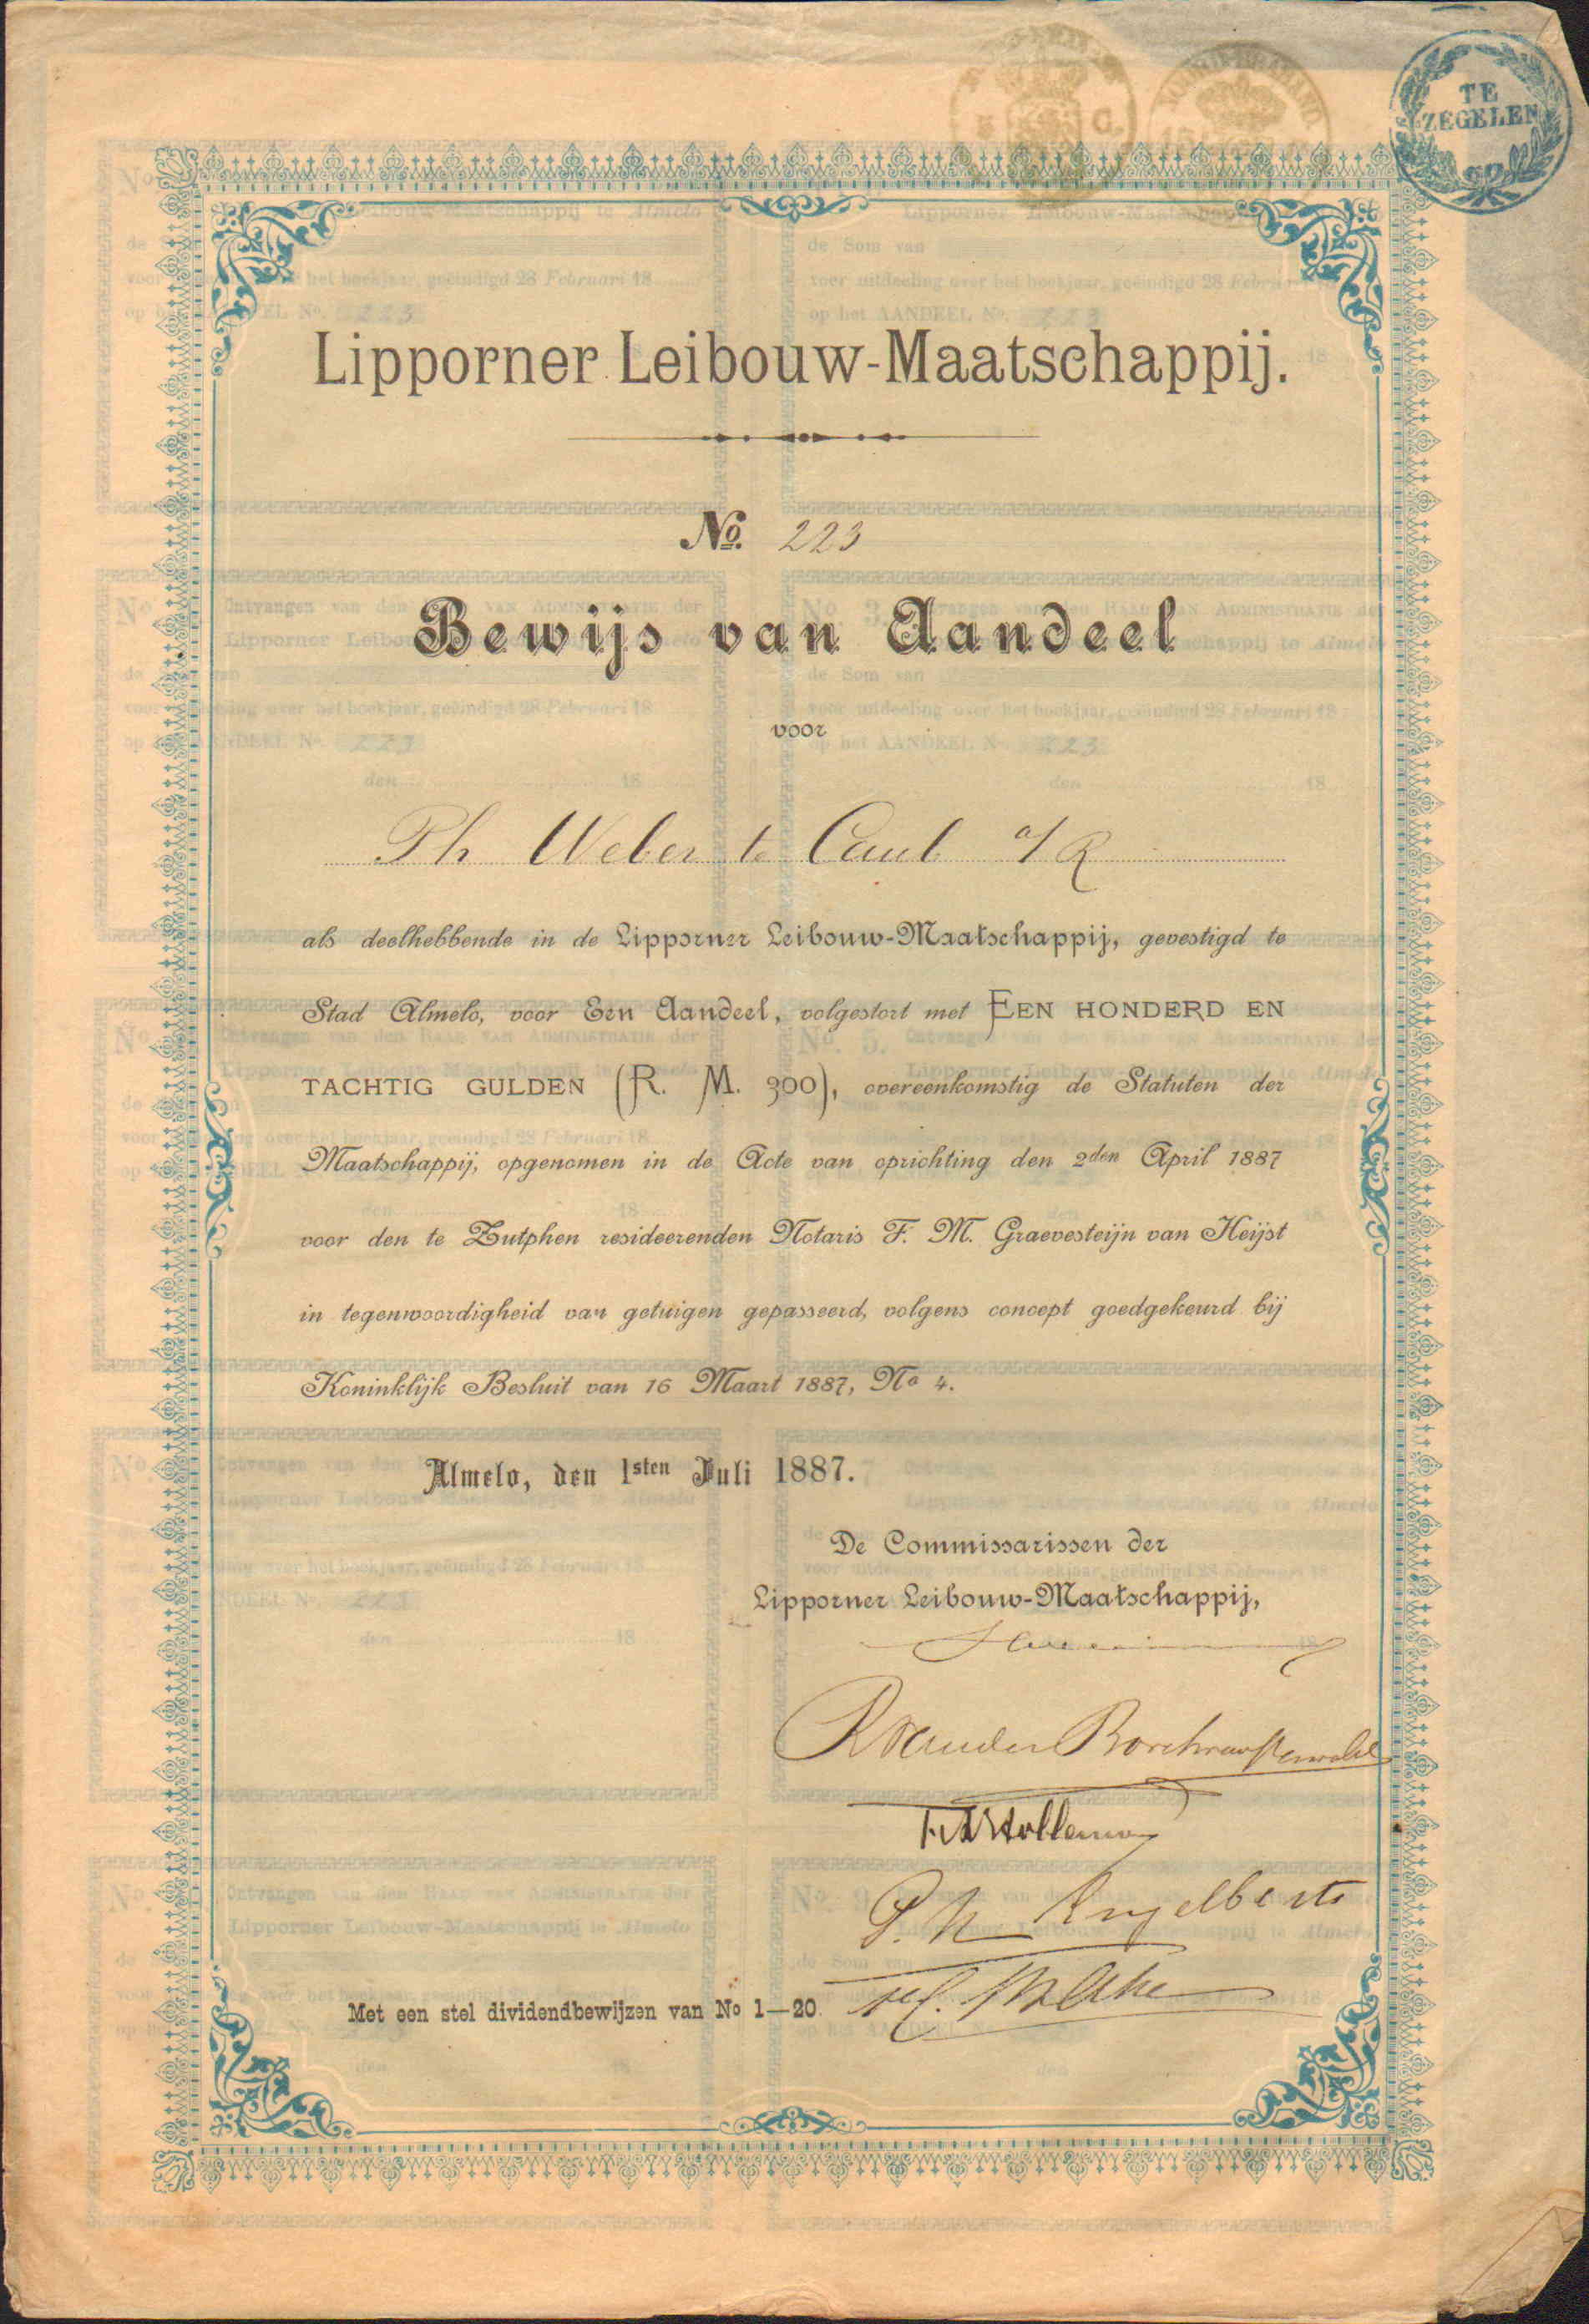 TE
ZEGELEN
Lipporner Leibouw-Maatschappij.
No. 223
Bewijs van Aandeel
voor
Ph Weber te Caub a/R
als deelhebbende in de Lipporner Leibouw-Maatschappij, gevestigd te
Stad Almelo, voor Een Aandeel, volgestort met EEN HONDERD EN
TACHTIG GULDEN (R. M. 300), overeenkomstig de Statuten der
Maatschappij, opgenomen in de Acte van oprichting den 2den April 1887
voor den te Zutphen resideerenden Notaris F. M. Graevesteijn van Heijst
in tegenwoordigheid van getuigen gepasseerd, volgens concept goedgekeurd bij
Koninklijk Besluit van 16 Maart 1887, No 4.
Almelo, den 1sten Juli 1887.
De Commissarissen der
Lipporner Leibouw-Maatschappij,
P. H. Engelberts
Met een stel dividendbewijzen van No 1—20.